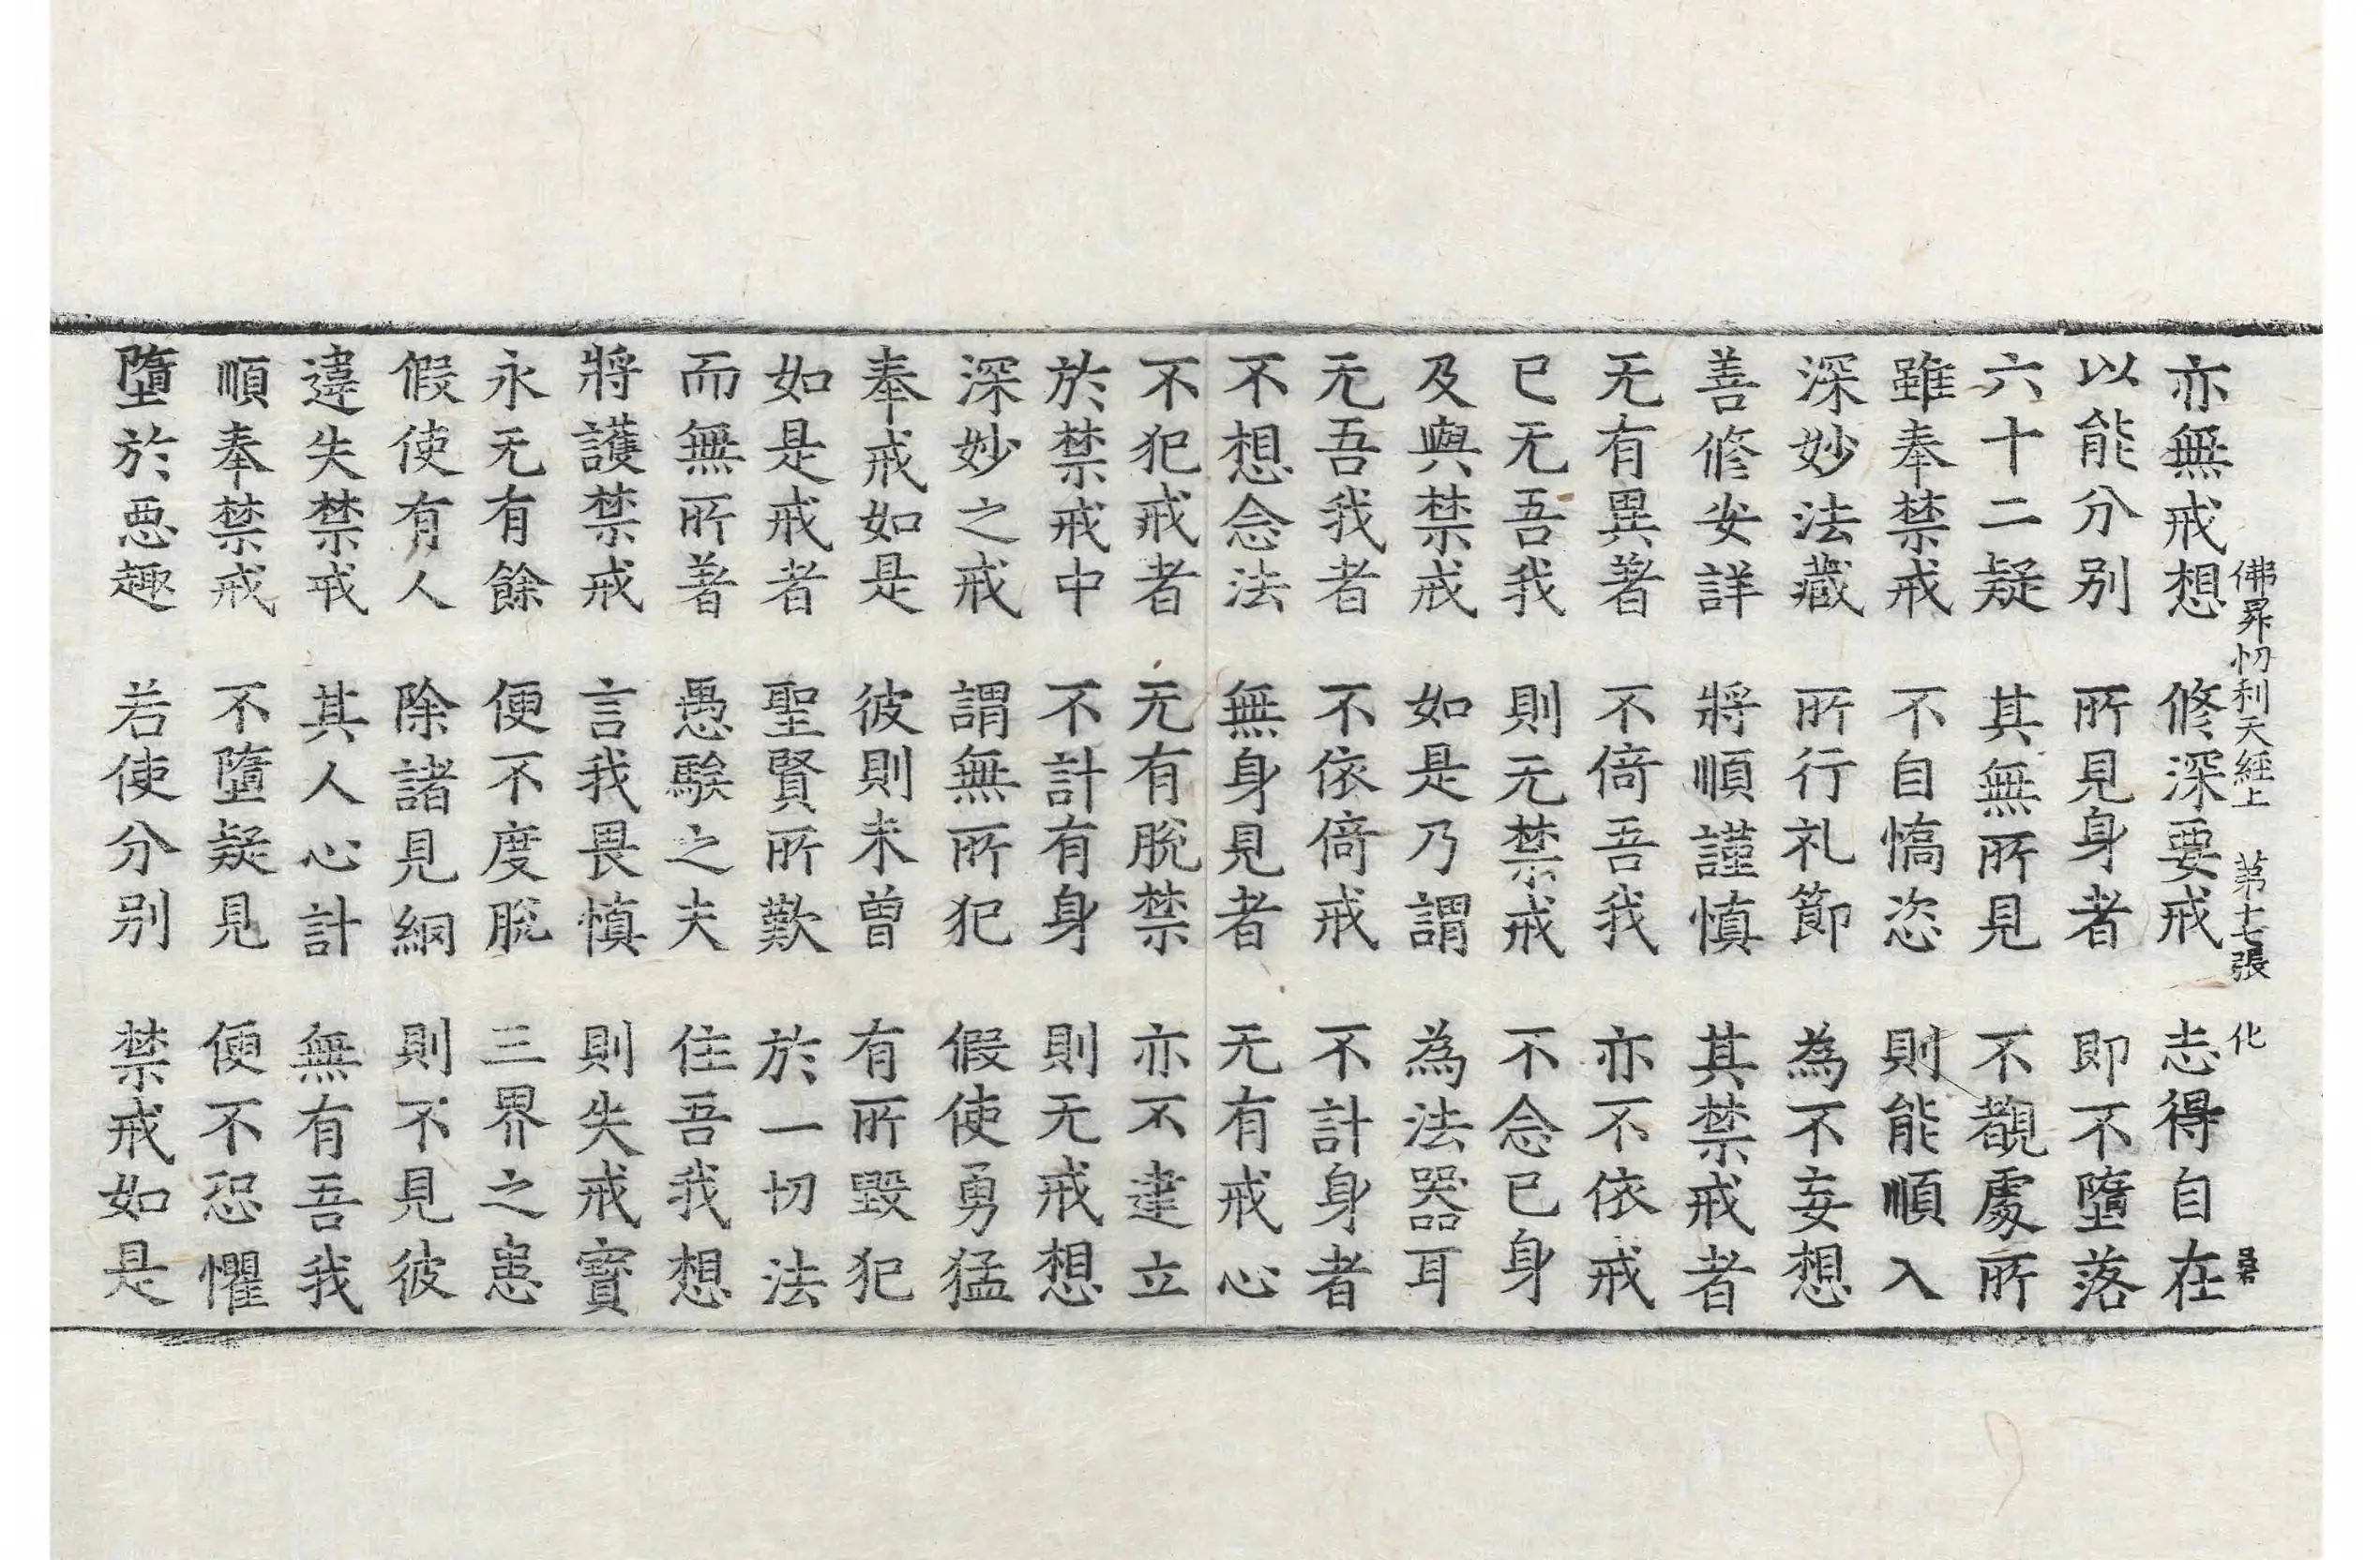 佛昇忉利天經上　第七張　化
亦無戒想　修深要戒　志得自在
以能分别　所見身者　即不墮落
六十二疑　其無所見　不覩處所
雖奉禁戒　不自憍恣　則能順入
深妙法藏　所行礼節　為不妄想
善修安詳　將順謹慎　其禁戒者
无有異著　不倚吾我　亦不依戒
已无吾我　則无禁戒　不念已身
及與禁戒　如是乃謂　為法器耳
无吾我者　不依倚戒　不計身者
不想念法　無身見者　无有戒心
不犯戒者　无有脫禁　亦不建立
於禁戒中　不計有身　則无戒想
深妙之戒　謂無所犯　假使勇猛
奉戒如是　彼則未曾　有所毀犯
如是戒者　聖賢所歎　於一切法
而無所著　愚騃之夫　住吾我想
將護禁戒　言我畏慎　則失戒寶
永无有餘　便不度脫　三界之患
假使有人　除諸見網　則不見彼
違失禁戒　其人心計　無有吾我
順奉禁戒　不墮疑見　便不恐懼
墮於惡趣　若使分别　禁戒如是